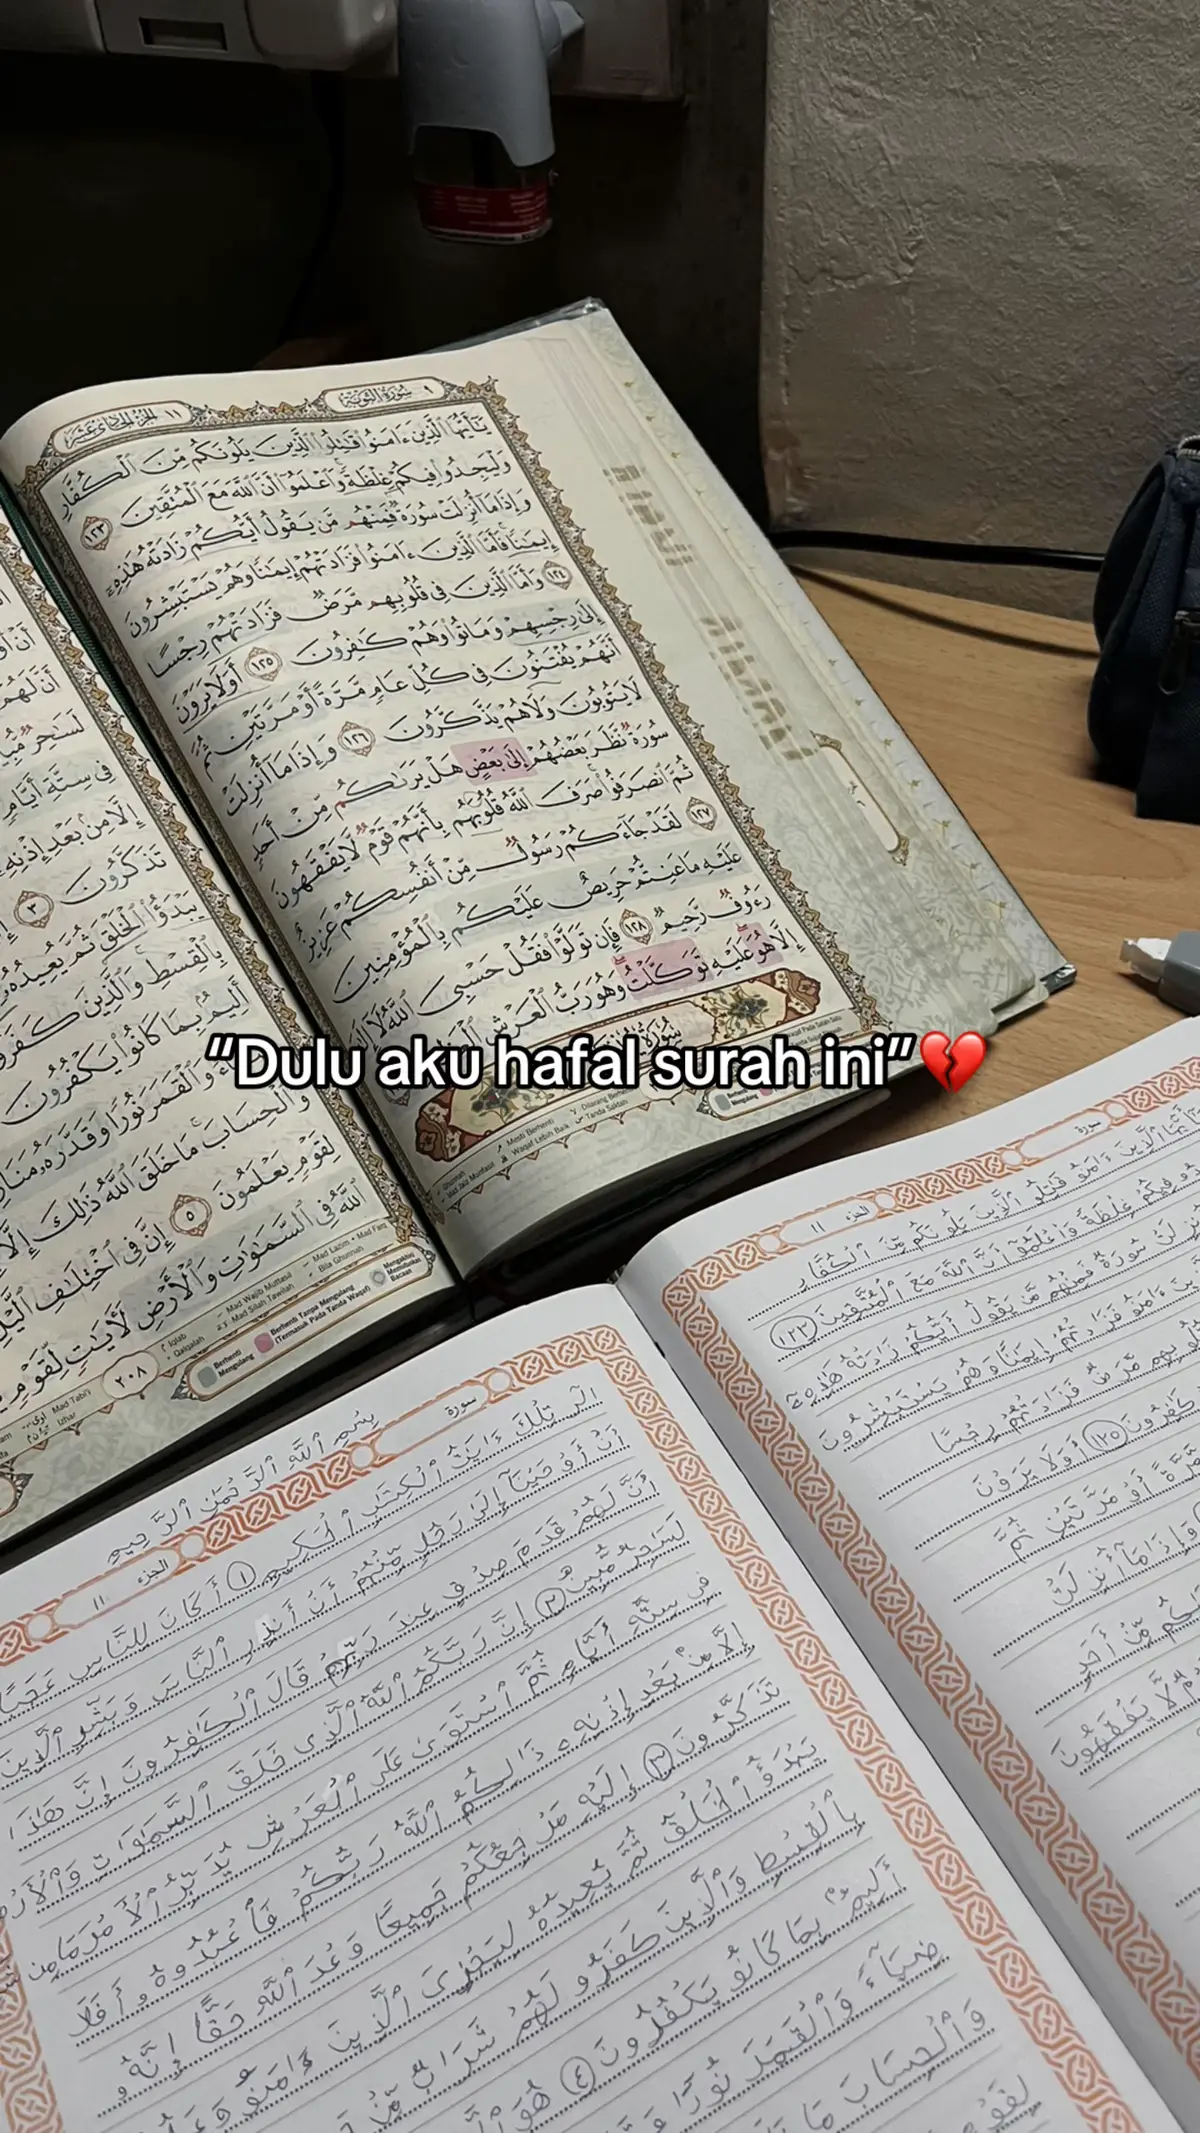 سُورَةُ التَّوْبَةِ ٩
الجُزْءُ الحَادِي عَشَرَ ١١
يَٰٓأَيُّهَا ٱلَّذِينَ ءَامَنُوا۟ قَٰتِلُوا۟ ٱلَّذِينَ يَلُونَكُم مِّنَ ٱلْكُفَّارِ
وَلْيَجِدُوا۟ فِيكُمْ غِلْظَةً وَٱعْلَمُوٓا۟ أَنَّ ٱللَّهَ مَعَ ٱلْمُتَّقِينَ ١٢٣
وَإِذَا مَآ أُنزِلَتْ سُورَةٌ فَمِنْهُم مَّن يَقُولُ أَيُّكُمْ زَادَتْهُ هَٰذِهِۦٓ
إِيمَٰنًا فَأَمَّا ٱلَّذِينَ ءَامَنُوا۟ فَزَادَتْهُمْ إِيمَٰنًا وَهُمْ يَسْتَبْشِرُونَ
١٢٤ وَأَمَّا ٱلَّذِينَ فِى قُلُوبِهِم مَّرَضٌ فَزَادَتْهُمْ رِجْسًا
إِلَىٰ رِجْسِهِمْ وَمَاتُوا۟ وَهُمْ كَٰفِرُونَ ١٢٥ أَوَلَا يَرَوْنَ
أَنَّهُمْ يُفْتَنُونَ فِى كُلِّ عَامٍ مَّرَّةً أَوْ مَرَّتَيْنِ ثُمَّ
لَا يَتُوبُونَ وَلَا هُمْ يَذَّكَّرُونَ ١٢٦ وَإِذَا مَآ أُنزِلَتْ
سُورَةٌ نَّظَرَ بَعْضُهُمْ إِلَىٰ بَعْضٍ هَلْ يَرَىٰكُم مِّنْ أَحَدٍ
ثُمَّ ٱنصَرَفُوا۟ صَرَفَ ٱللَّهُ قُلُوبَهُم بِأَنَّهُمْ قَوْمٌ لَّا يَفْقَهُونَ
١٢٧ لَقَدْ جَآءَكُمْ رَسُولٌ مِّنْ أَنفُسِكُمْ عَزِيزٌ
عَلَيْهِ مَا عَنِتُّمْ حَرِيصٌ عَلَيْكُم بِٱلْمُؤْمِنِينَ
رَءُوفٌ رَّحِيمٌ ١٢٨ فَإِن تَوَلَّوْا۟ فَقُلْ حَسْبِىَ ٱللَّهُ لَآ
إِلَّا هُوَ عَلَيْهِ تَوَكَّلْتُ وَهُوَ رَبُّ ٱلْعَرْشِ
سُورَةُ
Ghunnah
Mad Jaiz Munfasil
Mesti Berhenti
Waqaf Lebih Baik
Dilarang
Tanda Saktah
أَنْ
أَنَّ لَهُمْ
لَسَٰحِرٌ
فِى سِتَّةِ أَيَّامٍ
إِلَّا مِنۢ بَعْدِ إِذْنِهِۦ
تَذَكَّرُونَ ٣
يَبْدَؤُا۟ ٱلْخَلْقَ ثُمَّ يُعِيدُهُۥ
بِٱلْقِسْطِ وَٱلَّذِينَ كَفَرُوا۟
أَلِيمٌۢ بِمَا كَانُوا۟ يَكْفُرُونَ
وَٱلْقَمَرَ نُورًا وَقَدَّرَهُۥ
وَٱلْحِسَابَ مَا خَلَقَ ٱللَّهُ ذَٰلِكَ إِلَّا
لِقَوْمٍ يَعْلَمُونَ ٥ إِنَّ فِى ٱخْتِلَٰفِ
ٱللَّهُ فِى ٱلسَّمَٰوَٰتِ وَٱلْأَرْضِ لَءَايَٰتٍ لِّقَوْمٍ
٢٠٨
Mad Tabi'i
Izhar
Iqlab
Qalqalah
Mad Wajib Muttasil
Mad Silah Tawilah
Mad Lazim
Mad Farq
Bila Ghunnah
Berhenti Mengulang
Berhenti Tanpa Mengulang
(Termasuk Pada Tanda Waqaf)
Mengakhiri Membulatkan Bacaan
“Dulu aku hafal surah ini”💔
سورة
الجزء ١١
ٱلَّذِينَ ءَامَنُوا۟ قَٰتِلُوا۟ ٱلَّذِينَ يَلُونَكُم مِّنَ ٱلْكُفَّارِ
فِيكُمْ غِلْظَةً وَٱعْلَمُوٓا۟ أَنَّ ٱللَّهَ مَعَ ٱلْمُتَّقِينَ ١٢٣
سُورَةٌ فَمِنْهُم مَّن يَقُولُ أَيُّكُمْ زَادَتْهُ هَٰذِهِۦٓ
ءَامَنُوا۟ فَزَادَتْهُمْ إِيمَٰنًا وَهُمْ يَسْتَبْشِرُونَ
مَّرَضٌ فَزَادَتْهُمْ رِجْسًا
كَٰفِرُونَ ١٢٥ أَوَلَا يَرَوْنَ
أَوْ مَرَّتَيْنِ ثُمَّ
وَإِذَا مَآ أُنزِلَتْ
مِّنْ أَحَدٍ
لَّا يَفْقَهُونَ
سورة
الجزء ١١
بِسْمِ ٱللَّهِ ٱلرَّحْمَٰنِ ٱلرَّحِيمِ
الٓر تِلْكَ ءَايَٰتُ ٱلْكِتَٰبِ ٱلْحَكِيمِ ١ أَكَانَ لِلنَّاسِ عَجَبًا
أَنْ أَوْحَيْنَآ إِلَىٰ رَجُلٍ مِّنْهُمْ أَنْ أَنذِرِ ٱلنَّاسَ وَبَشِّرِ ٱلَّذِينَ
أَنَّ لَهُمْ قَدَمَ صِدْقٍ عِندَ رَبِّهِمْ قَالَ ٱلْكَٰفِرُونَ إِنَّ هَٰذَا
لَسَٰحِرٌ مُّبِينٌ ٢ إِنَّ رَبَّكُمُ ٱللَّهُ ٱلَّذِى خَلَقَ ٱلسَّمَٰوَٰتِ وَٱلْأَرْضَ
فِى سِتَّةِ أَيَّامٍ ثُمَّ ٱسْتَوَىٰ عَلَى ٱلْعَرْشِ يُدَبِّرُ ٱلْأَمْرَ مَا مِن
إِلَّا مِنۢ بَعْدِ إِذْنِهِۦ ذَٰلِكُمُ ٱللَّهُ رَبُّكُمْ فَٱعْبُدُوهُ أَفَلَا
تَذَكَّرُونَ ٣ إِلَيْهِ مَرْجِعُكُمْ جَمِيعًا وَعْدَ ٱللَّهِ حَقًّا إِنَّهُۥ
يَبْدَؤُا۟ ٱلْخَلْقَ ثُمَّ يُعِيدُهُۥ لِيَجْزِىَ ٱلَّذِينَ ءَامَنُوا۟
بِٱلْقِسْطِ وَٱلَّذِينَ كَفَرُوا۟ لَهُمْ شَرَابٌ مِّنْ
أَلِيمٌۢ بِمَا كَانُوا۟ يَكْفُرُونَ ٤ هُوَ
ضِيَآءً وَٱلْقَمَرَ نُورًا
وَٱلْحِسَابَ مَا
لِقَوْمٍ